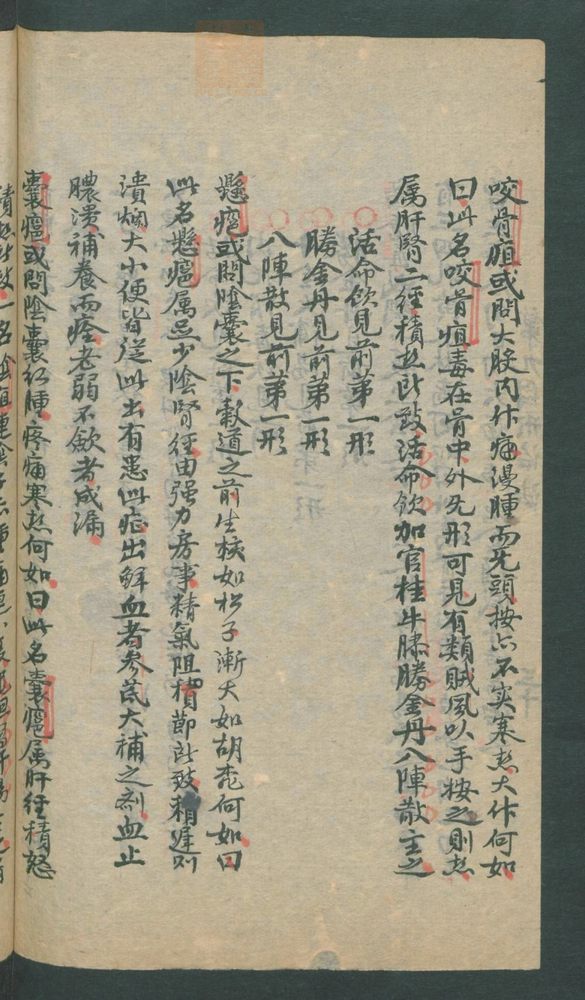 咬骨疽或問大股內作痛漫腫而无頭按亦不实寒热大作何如
曰此名咬骨疽毒在骨中外无形可見有類賊风以手按之則热
属肝腎二経積热所致活命飲加官桂牛膝勝金丹八陣散主之
活命飲見前第一形
勝金丹見前第一形
八陣散見前第一形
懸癰或問陰囊之下穀道之前生核如松子漸大如胡桃何如曰
此名懸癰属足少陰腎経由强力房事精氣阻積節所致稍遲則
潰爛大小便皆従此出有患此症出鮮血者参茋大補之剤血止
膿潰補養而痊老弱不飲者成漏
囊癰或問陰囊红腫疼痛寒热何如曰此名囊癰属肝経積怒